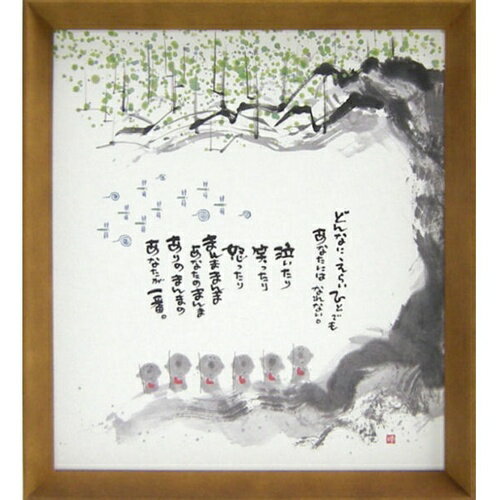 どんなに、えらいひとでも
あなたには なれない。
泣いたり
笑ったり
怒ったり
まんままんま
あなたのまんま
ありのまんまの
あなたが一番。